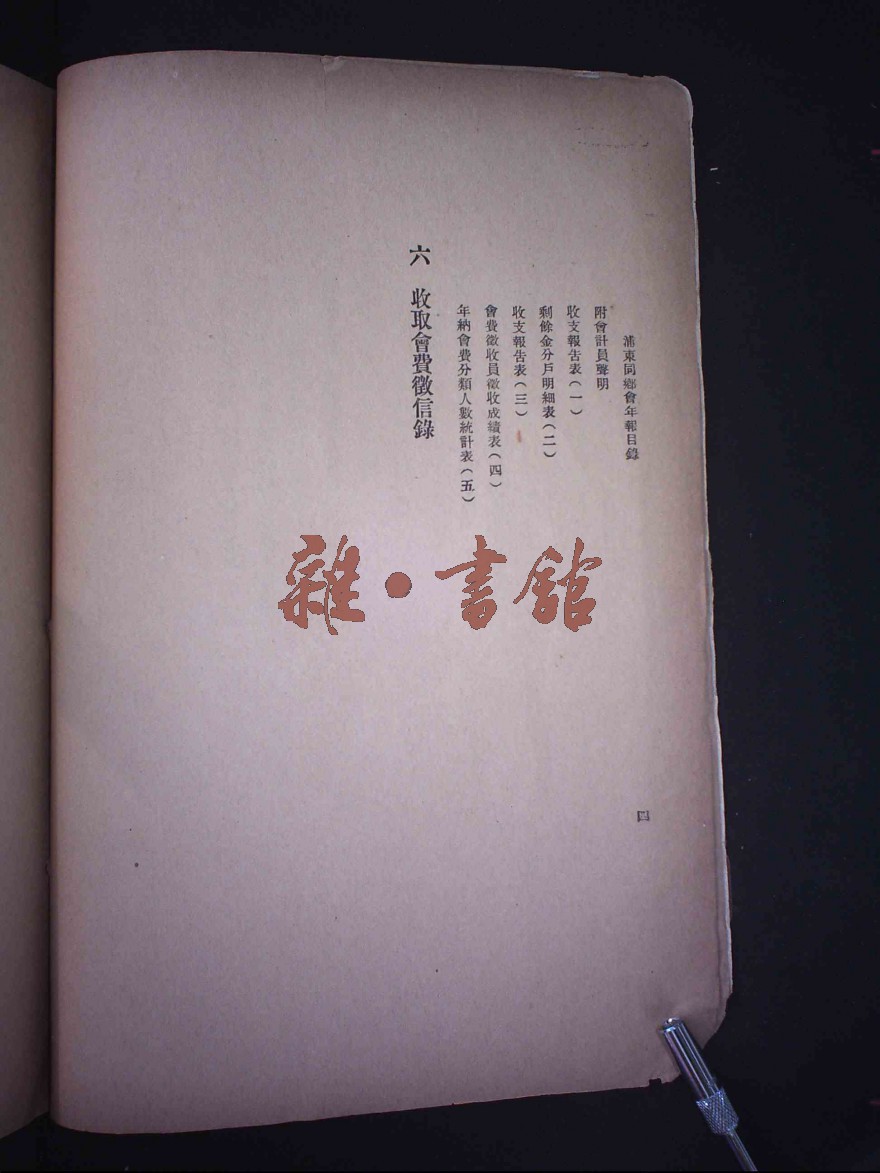 浦東同鄉會年報目錄
附會計員聲明
收支報告表(一)
剩餘金分戶明細表(二)
收支報告表(三)
會費徵收員徵收成績表(四)
年納會費分類人數統計表(五)
六 收取會費徵信錄
四
雜·書館